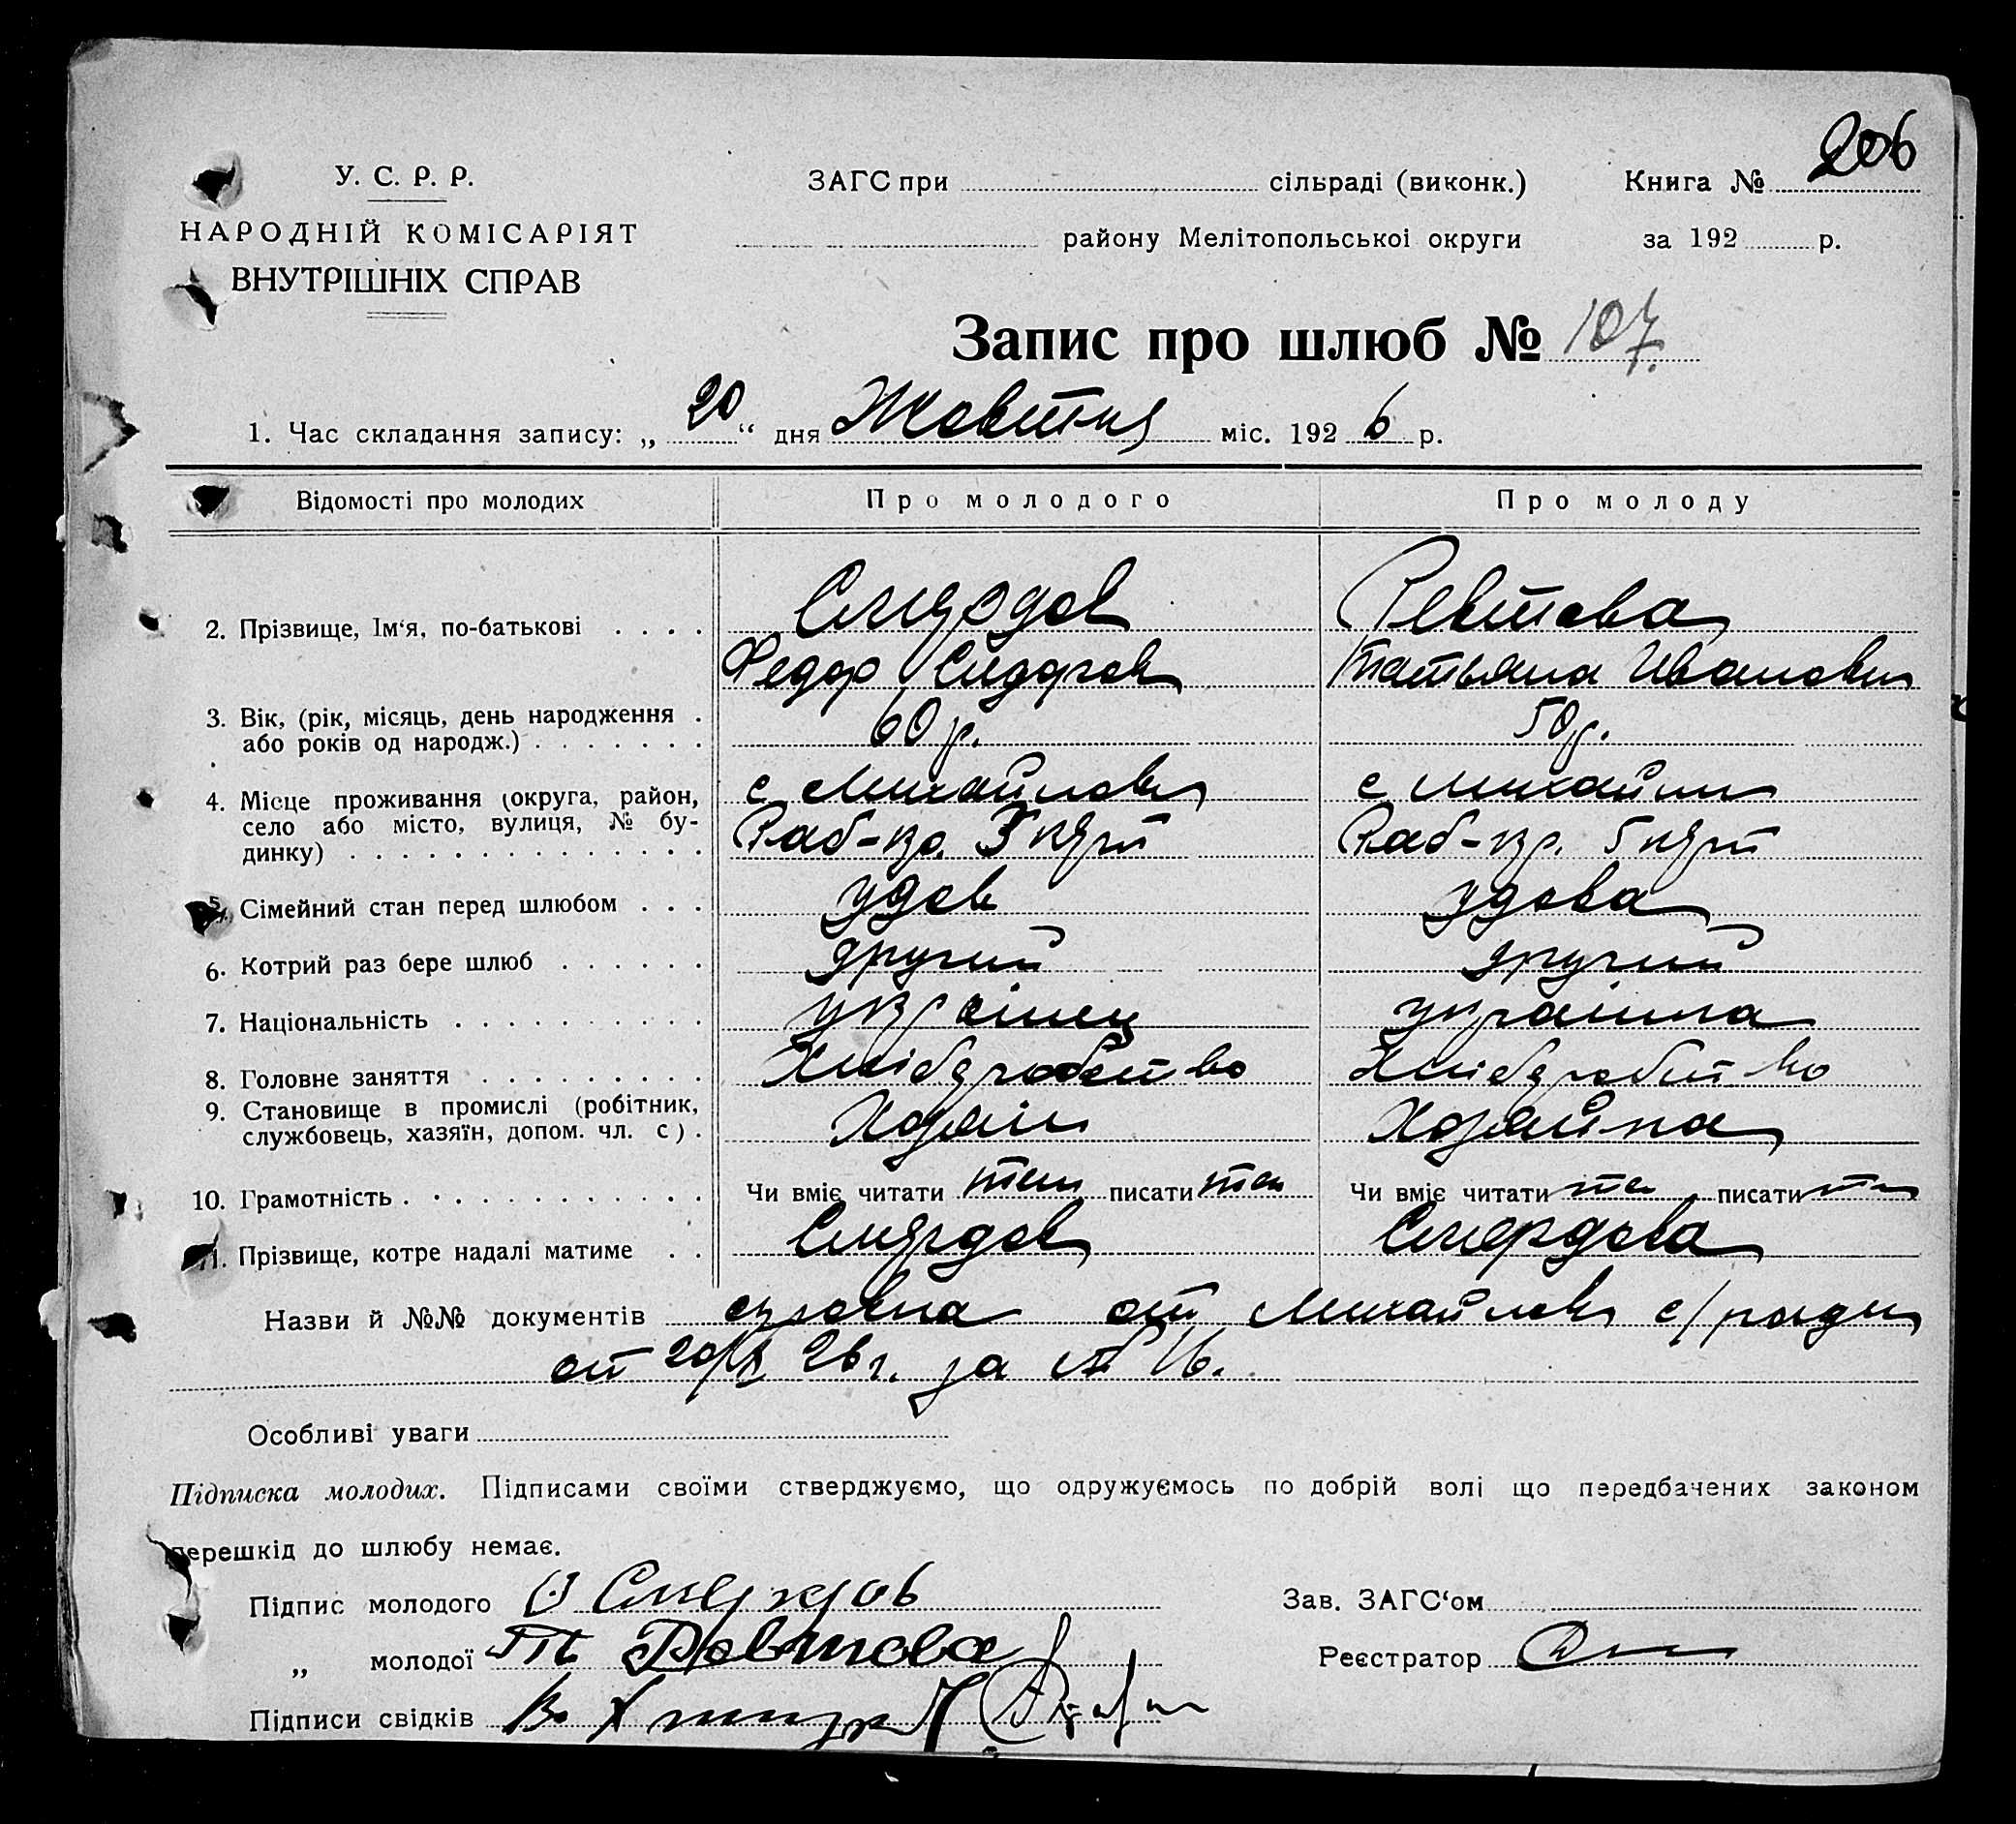 206
У. С. Р. Р.
НАРОДНІЙ КОМІСАРІЯТ
ВНУТРІШНІХ СПРАВ
ЗАГС при сільраді (виконк.) Книга №
району Мелітопольськоі округи за 192 р.
Запис про шлюб № 107.
1. Час складання запису: „ 20 “ дня Жовтня міс. 192 6 р.
Відомості про молодих Про молодого Про молоду
2. Прізвище, Ім‘я, по-батькові Смердов Ревтова
Федор Сидоров Татьяна Иванов
3. Вік, (рік, місяць, день народження
або років од народж.) 60 р. 50 р.
4. Місце проживання (округа, район, с Михайлов с Михайли
село або місто, вулиця, № бу-
динку) Раб-кр. 3 Раб-кр. 5
5. Сімейний стан перед шлюбом удов удова
6. Котрий раз бере шлюб другий другий
7. Національність українец українка
8. Головне заняття Хлібдробство Хлібдробство
9. Становище в промислі (робітник,
службовець, хазяїн, допом. чл. с). Хозяін Хозяйка
10. Грамотність Чи вміє читати так писати так Чи вміє читати так писати так
11. Прізвище, котре надалі матиме Смердов Смердова
Назви й №№ документів от Михайлов с/ради
от 20/X 26 г. за № 16.
Особливі уваги
Підписка молодих. Підписами своїми стверджуємо, що одружуємось по добрій волі що передбачених законом
перешкід до шлюбу немає.
Підпис молодого Смердов Зав. ЗАГС‘ом
„ молодої Т Ревтова Реєстратор
Підписи свідків В.